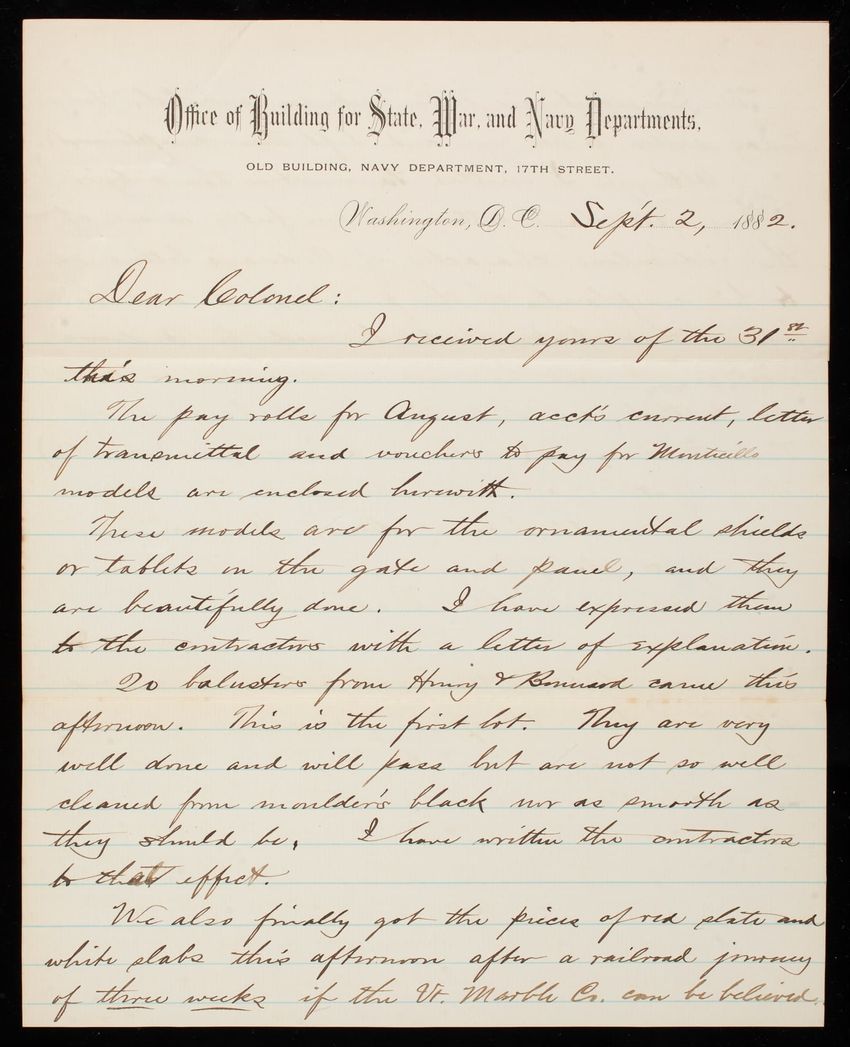 Office of Building for State, War, and Navy Departments.
OLD BUILDING, NAVY DEPARTMENT, 17TH STREET.
Washington, D. C. Sep't. 2, 1882.
Dear Colonel:
I received yours of the 31st
this morning.
The pay rolls for August, acct's current, letter
of transmittal and vouchers to pay for Monticello
models are enclosed herewith.
These models are for the ornamental shields
or tablets on the gate and panel, and they
are beautifully done. I have expressed them
to the contractors with a letter of explanation.
20 balusters from & came this
afternoon. This is the first lot. They are very
well done and will pass but are not so well
cleaned from moulder's black nor as smooth as
they should be. I have written the contractors
to that effect.
We also finally got the pieces of red slate and
white slabs this afternoon after a railroad journey
of three weeks if the Vt. Marble Co. can be believed.